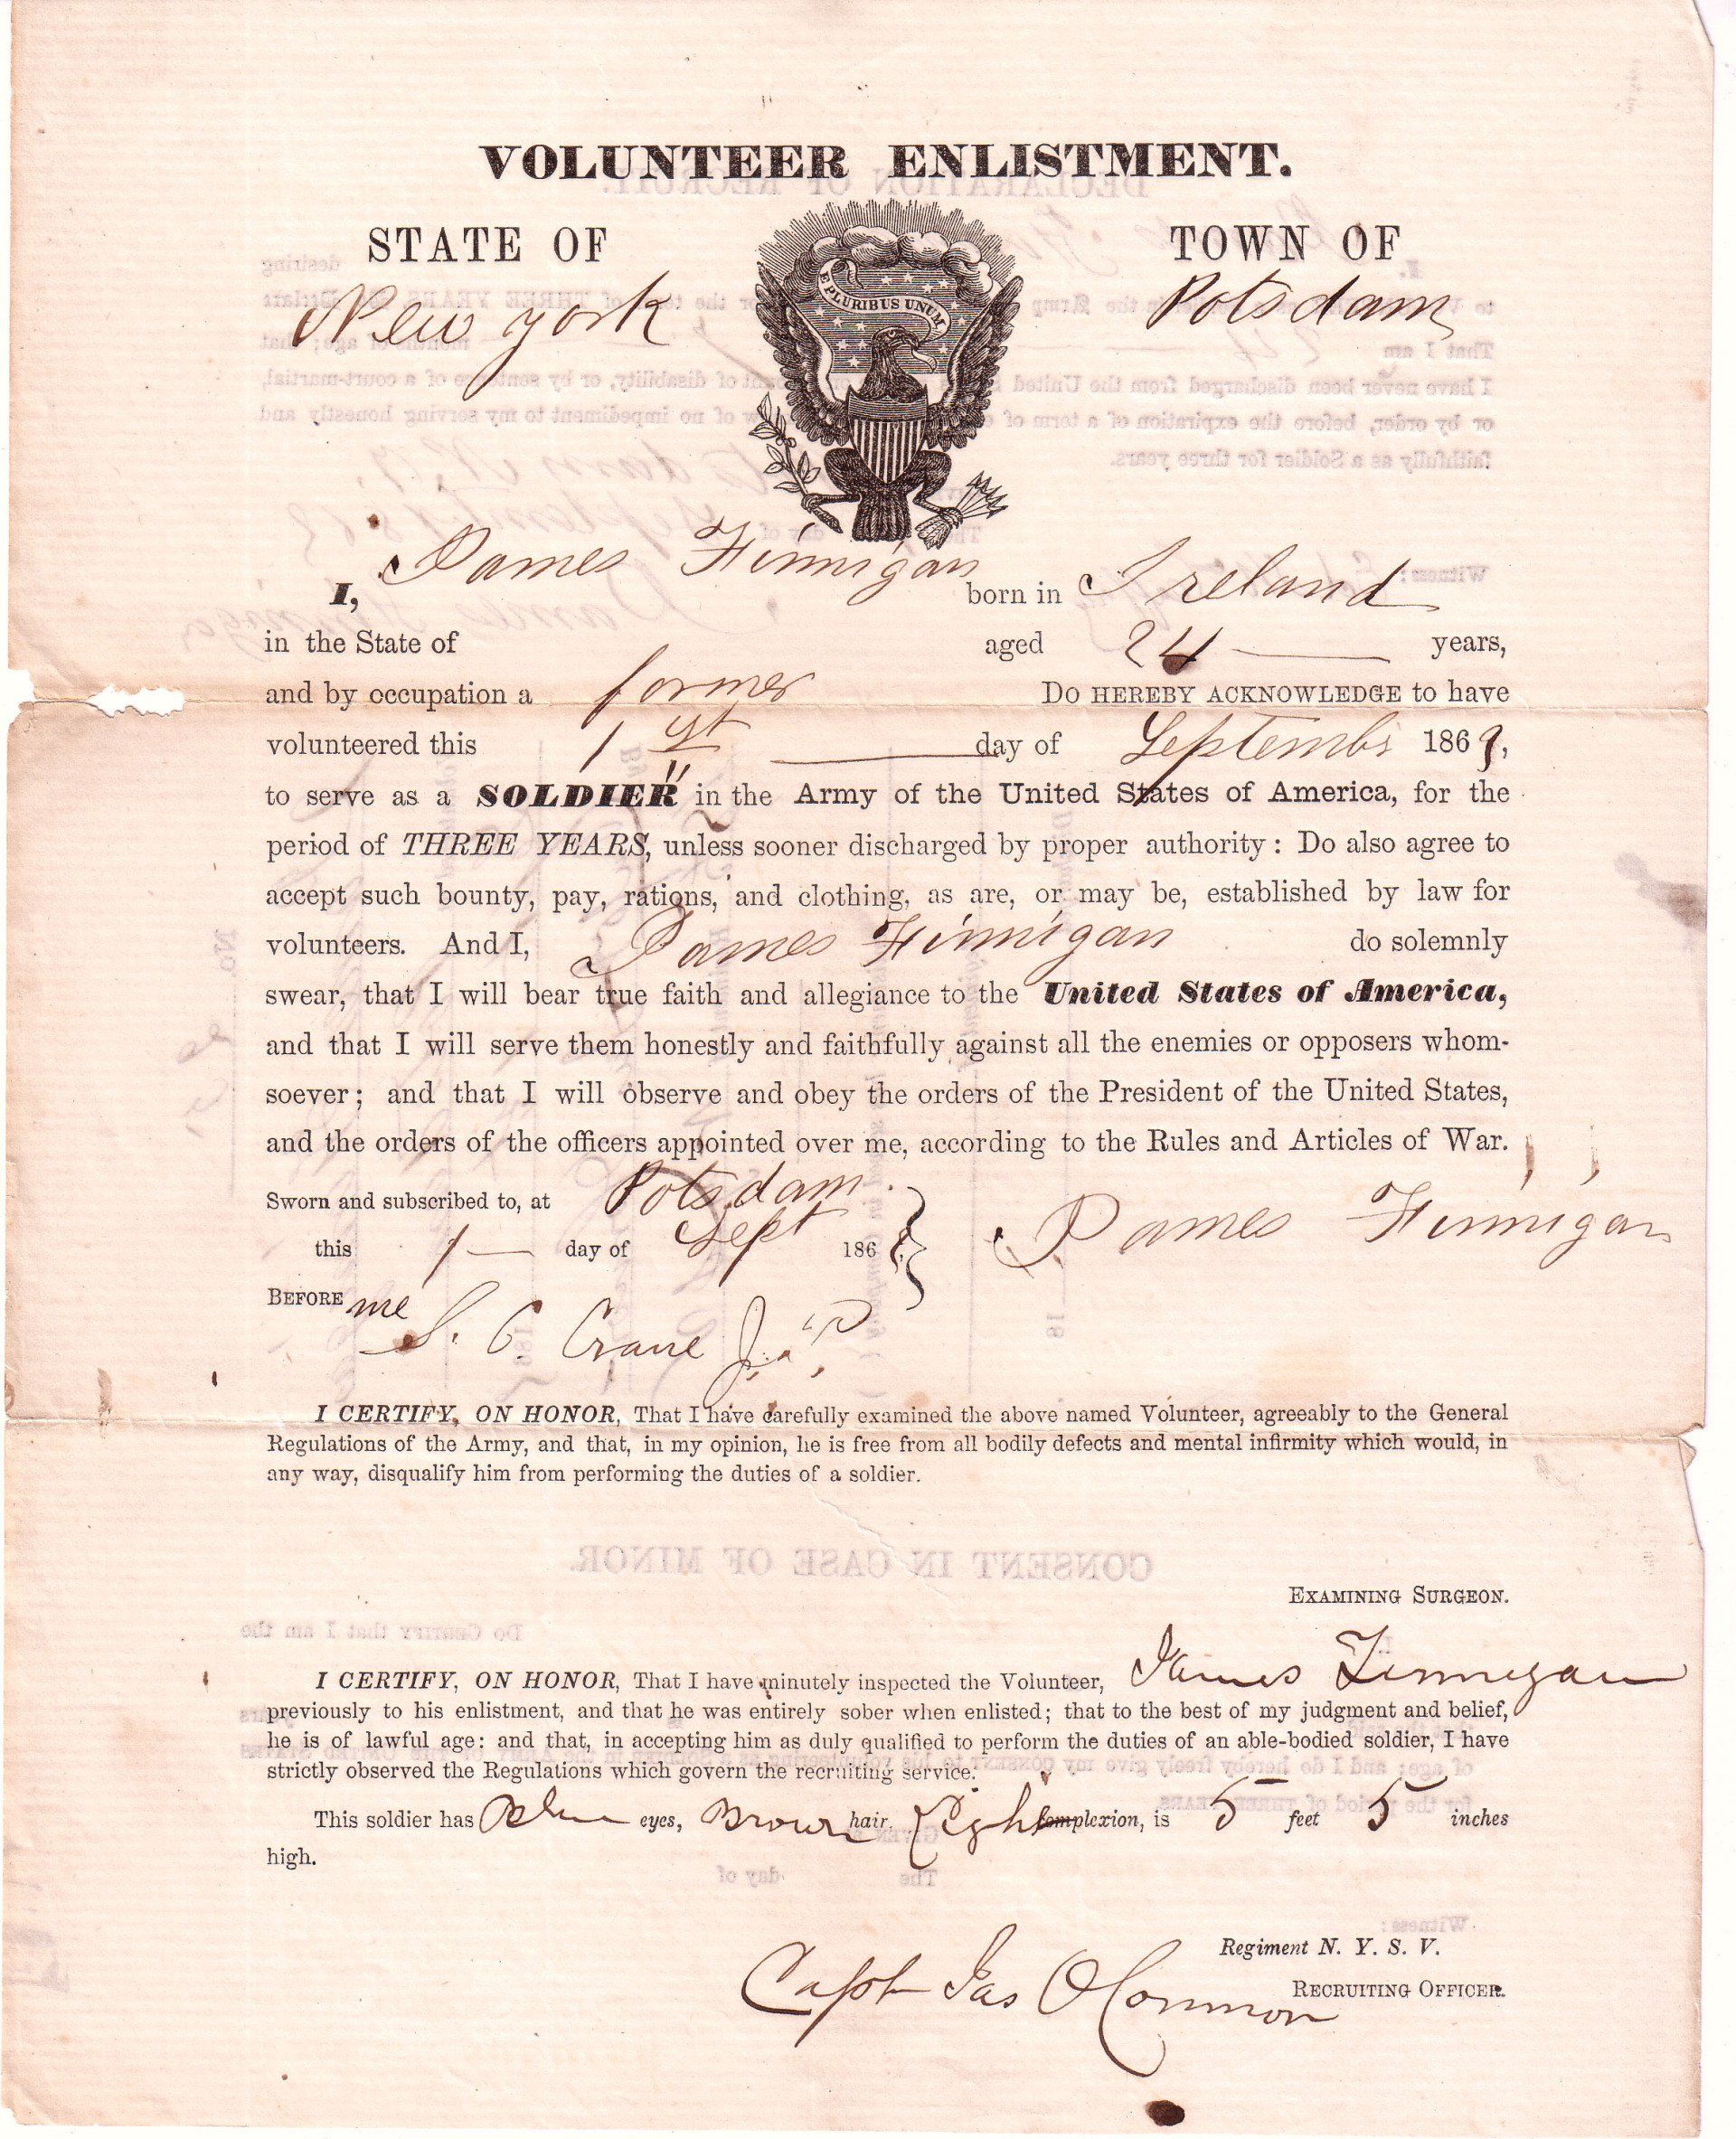 VOLUNTEER ENLISTMENT.
STATE OF
TOWN OF
New york
Potsdam
E PLURIBUS UNUM
I, James Finnigan born in Ireland
in the State of aged 24 years,
and by occupation a farmer Do HEREBY ACKNOWLEDGE to have
volunteered this 1st day of Septembr 186
to serve as a SOLDIER in the Army of the United States of America, for the
period of THREE YEARS, unless sooner discharged by proper authority: Do also agree to
accept such bounty, pay, rations, and clothing, as are, or may be, established by law for
volunteers. And I, James Finnigan do solemnly
swear, that I will bear true faith and allegiance to the United States of America,
and that I will serve them honestly and faithfully against all the enemies or opposers whom-
soever; and that I will observe and obey the orders of the President of the United States,
and the orders of the officers appointed over me, according to the Rules and Articles of War.
Sworn and subscribed to, at Potsdam
this 1 day of Sept 186
James Finnigan
BEFORE me
S. C. Crane
I CERTIFY, ON HONOR, That I have carefully examined the above named Volunteer, agreeably to the General
Regulations of the Army, and that, in my opinion, he is free from all bodily defects and mental infirmity which would, in
any way, disqualify him from performing the duties of a soldier.
EXAMINING SURGEON.
I CERTIFY, ON HONOR, That I have minutely inspected the Volunteer, James Finnegan
previously to his enlistment, and that he was entirely sober when enlisted; that to the best of my judgment and belief,
he is of lawful age: and that, in accepting him as duly qualified to perform the duties of an able-bodied soldier, I have
strictly observed the Regulations which govern the recruiting service.
This soldier has Blue eyes, Brown hair, Light complexion, is 5 feet 5 inches
high.
Regiment N. Y. S. V.
Capt Jas RECRUITING OFFICER.